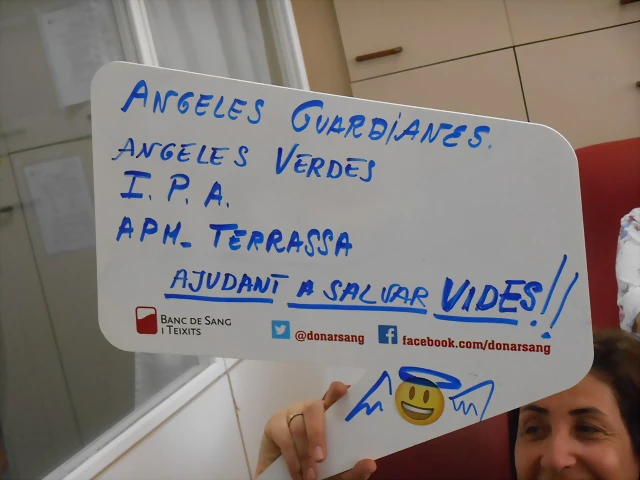 ANGELES GUARDIANES.
ANGELES VERDES
I. P. A.
APM- TERRASSA
AJUDANT A SALVAR VIDES!!
BANC DE SANG
I TEIXITS
@donarsang
facebook.com/donarsang